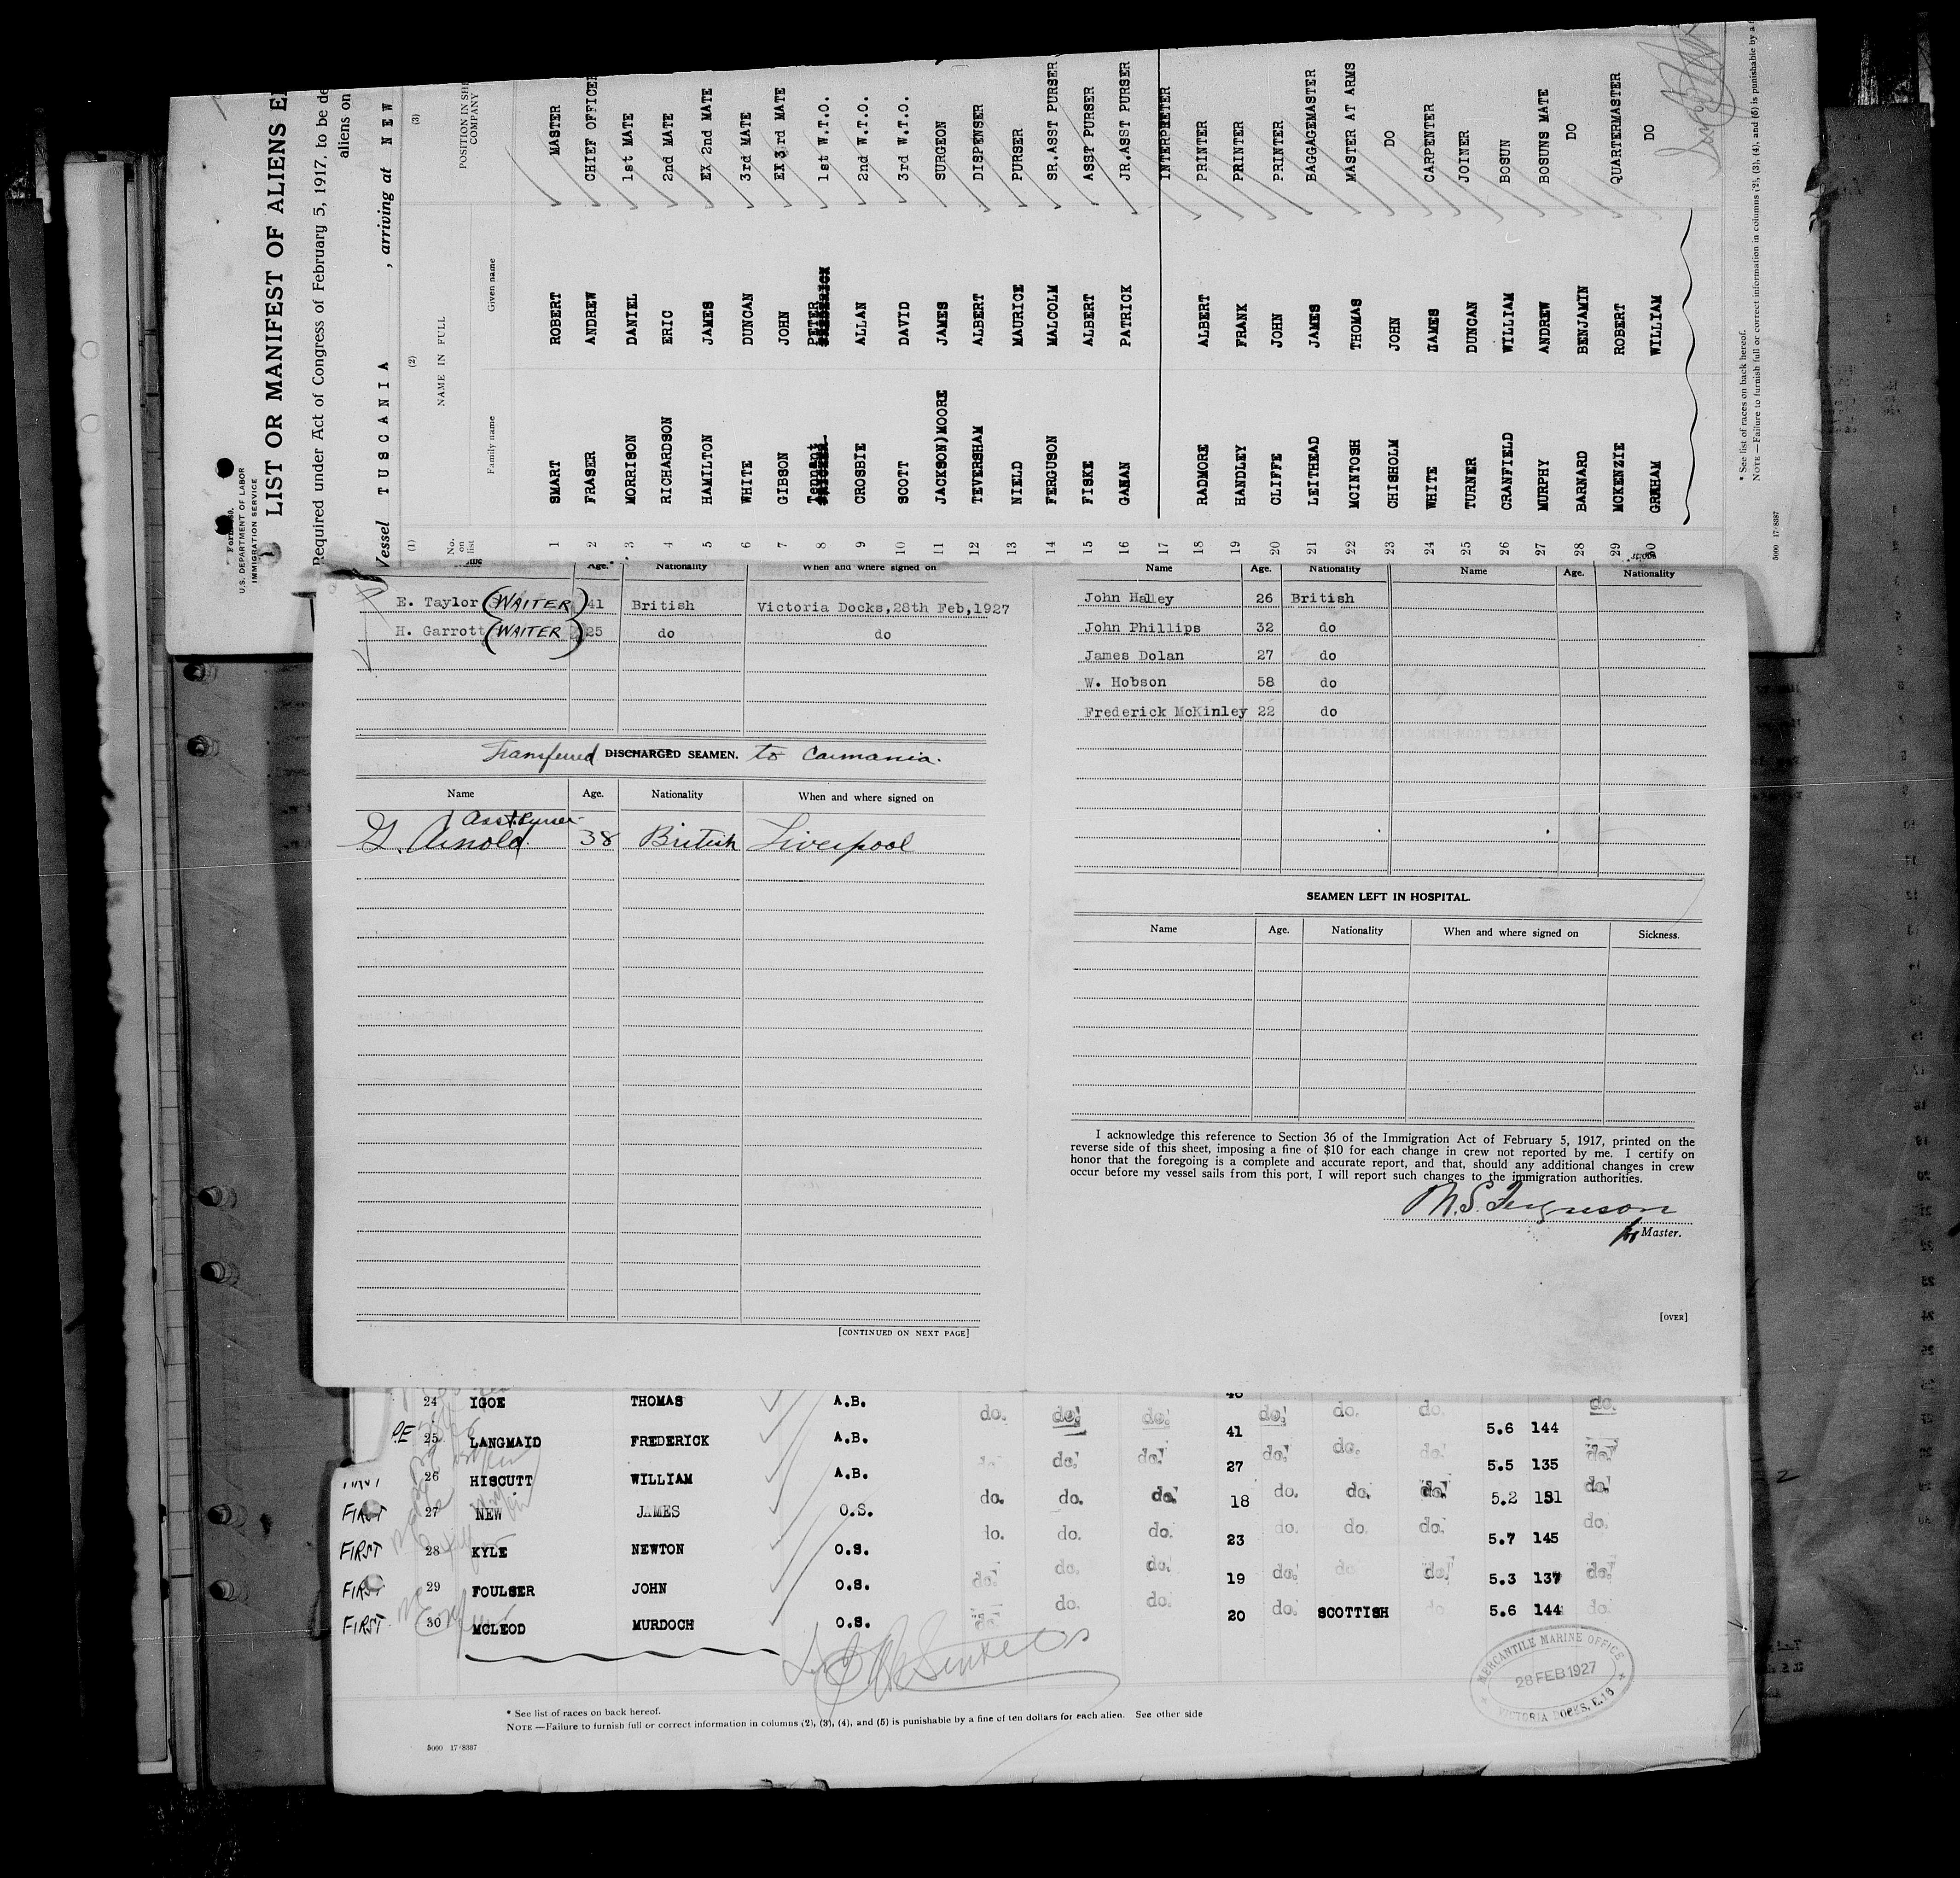 Form 680.
U.S. DEPARTMENT OF LABOR
IMMIGRATION SERVICE
LIST OR MANIFEST OF ALIENS
Required under Act of Congress of February 5, 1917, to be de
aliens on
Vessel TUSCANIA , arriving at NEW
(1) (2) (3)
No. on list NAME IN FULL POSITION IN SHI COMPANY
Family name Given name
1 SMART ROBERT MASTER
2 FRASER ANDREW CHIEF OFFICER
3 MORRISON DANIEL 1st MATE
4 RICHARDSON ERIC 2nd MATE
5 HAMILTON JAMES EX 2nd MATE
6 WHITE DUNCAN 3rd MATE
7 GIBSON JOHN EX 3rd MATE
8 Tennant PETER 1st W.T.O.
9 CROSBIE ALLAN 2nd W.T.O.
10 SCOTT DAVID 3rd W.T.O.
11 JACKSON)MOORE JAMES SURGEON
12 TEVERSHAM ALBERT DISPENSER
13 NIELD MAURICE PURSER
14 FERGUSON MALCOLM SR.ASST PURSER
15 FISKE ALBERT ASST PURSER
16 GANAN PATRICK JR.ASST PURSER
17 INTERPRETER
18 RADMORE ALBERT PRINTER
19 HANDLEY FRANK PRINTER
20 CLIFFE JOHN PRINTER
21 LEITHEAD JAMES BAGGAGEMASTER
22 MCINTOSH THOMAS MASTER AT ARMS
23 CHISHOLM JOHN DO
24 WHITE JAMES CARPENTER
25 TURNER DUNCAN JOINER
26 CRANFIELD WILLIAM BOSUN
27 MURPHY ANDREW BOSUNS MATE
28 BARNARD BENJAMIN DO
29 MCKENZIE ROBERT QUARTERMASTER
30 GRAHAM WILLIAM DO
* See list of races on back hereof.
NOTE —Failure to furnish full or correct information in columns (2), (3), (4), and (5) is punishable by a f
5000 17-8387
Age. Nationality When and where signed on
E. Taylor (WAITER) 41 British Victoria Docks, 28th Feb, 1927
H. Garrott (WAITER) 25 do do
Transferred DISCHARGED SEAMEN. to Carmania.
Name Age. Nationality When and where signed on
Asst Purser
G. Arnold. 38 British Liverpool
[CONTINUED ON NEXT PAGE]
Name Age. Nationality Name Age. Nationality
John Halley 26 British
John Phillips 32 do
James Dolan 27 do
W. Hobson 58 do
Frederick McKinley 22 do
SEAMEN LEFT IN HOSPITAL.
Name Age. Nationality When and where signed on Sickness.
I acknowledge this reference to Section 36 of the Immigration Act of February 5, 1917, printed on the
reverse side of this sheet, imposing a fine of $10 for each change in crew not reported by me. I certify on
honor that the foregoing is a complete and accurate report, and that, should any additional changes in crew
occur before my vessel sails from this port, I will report such changes to the immigration authorities.
M.S. Ferguson
Master.
[OVER]
24 IGOE THOMAS A.B. do. do. do. do. do. do. do.
25 LANGMAID FREDERICK A.B. 41 5.6 144
26 HISCUTT WILLIAM A.B. do. do. 27 do. do. do. 5.5 135 do.
FIRST 27 NEW JAMES O.S. do. do. do. 18 do. do. do. 5.2 131 do.
FIRST 28 KYLE NEWTON O.S. do. do. do. 23 do. do. do. 5.7 145 do.
FIRST 29 FOULSER JOHN O.S. do. do. do. 19 do. do. do. 5.3 137 do.
FIRST 30 MCLEOD MURDOCH O.S. do. do. do. 20 do. SCOTTISH do. 5.6 144 do.
MERCANTILE MARINE OFFICE
28 FEB 1927
VICTORIA DOCKS, E.16
* See list of races on back hereof.
NOTE —Failure to furnish full or correct information in columns (2), (3), (4), and (5) is punishable by a fine of ten dollars for each alien. See other side
5000 17-8387